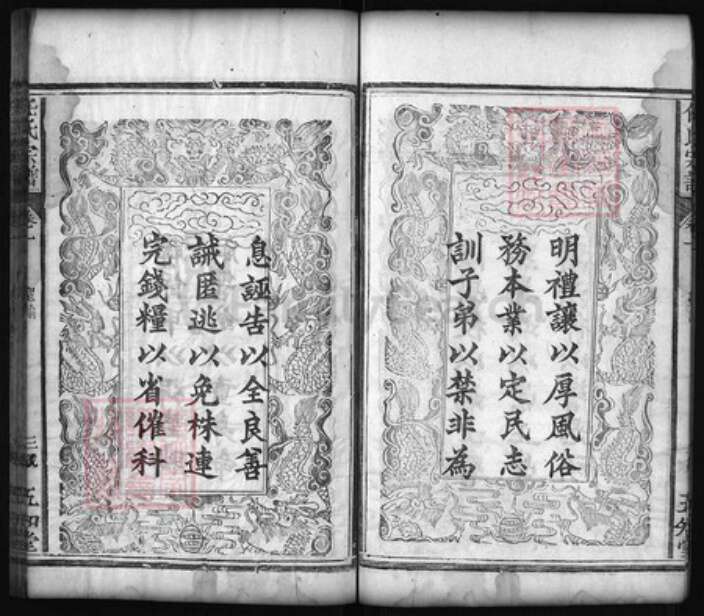 明禮讓以厚風俗
務本業以定民志
訓子弟以禁非為
息誣告以全良善
誡匿逃以免株連
完錢糧以省催科
氏宗譜
卷一